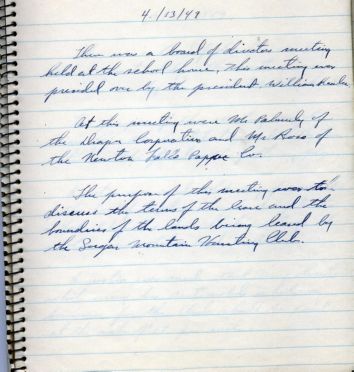 4/13/49
There was a board of directors meeting
held at the school house. This meeting was
presided over by the president, William
At this meeting were Mr.
of the Draper Corporation and Mr. Ross of
the Newton Falls Paper Co.
The purpose of this meeting was to
discuss the terms of the lease and the
boundries of the lands being leased by
the Sugar Mountain Hunting Club.